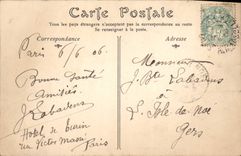 Carte Postale
Tous les pays étrangers n'acceptent pas la correspondance au recto.
Se renseigner à la poste
Correspondance
Adresse
Paris 6/6 06
Bonne Santé
Amitiés
J Labadens
Hotel de Turin
rue Victor Massé
Paris
Monsieur
J. Bte Labadens
à
L'Isle de Noé
Gers